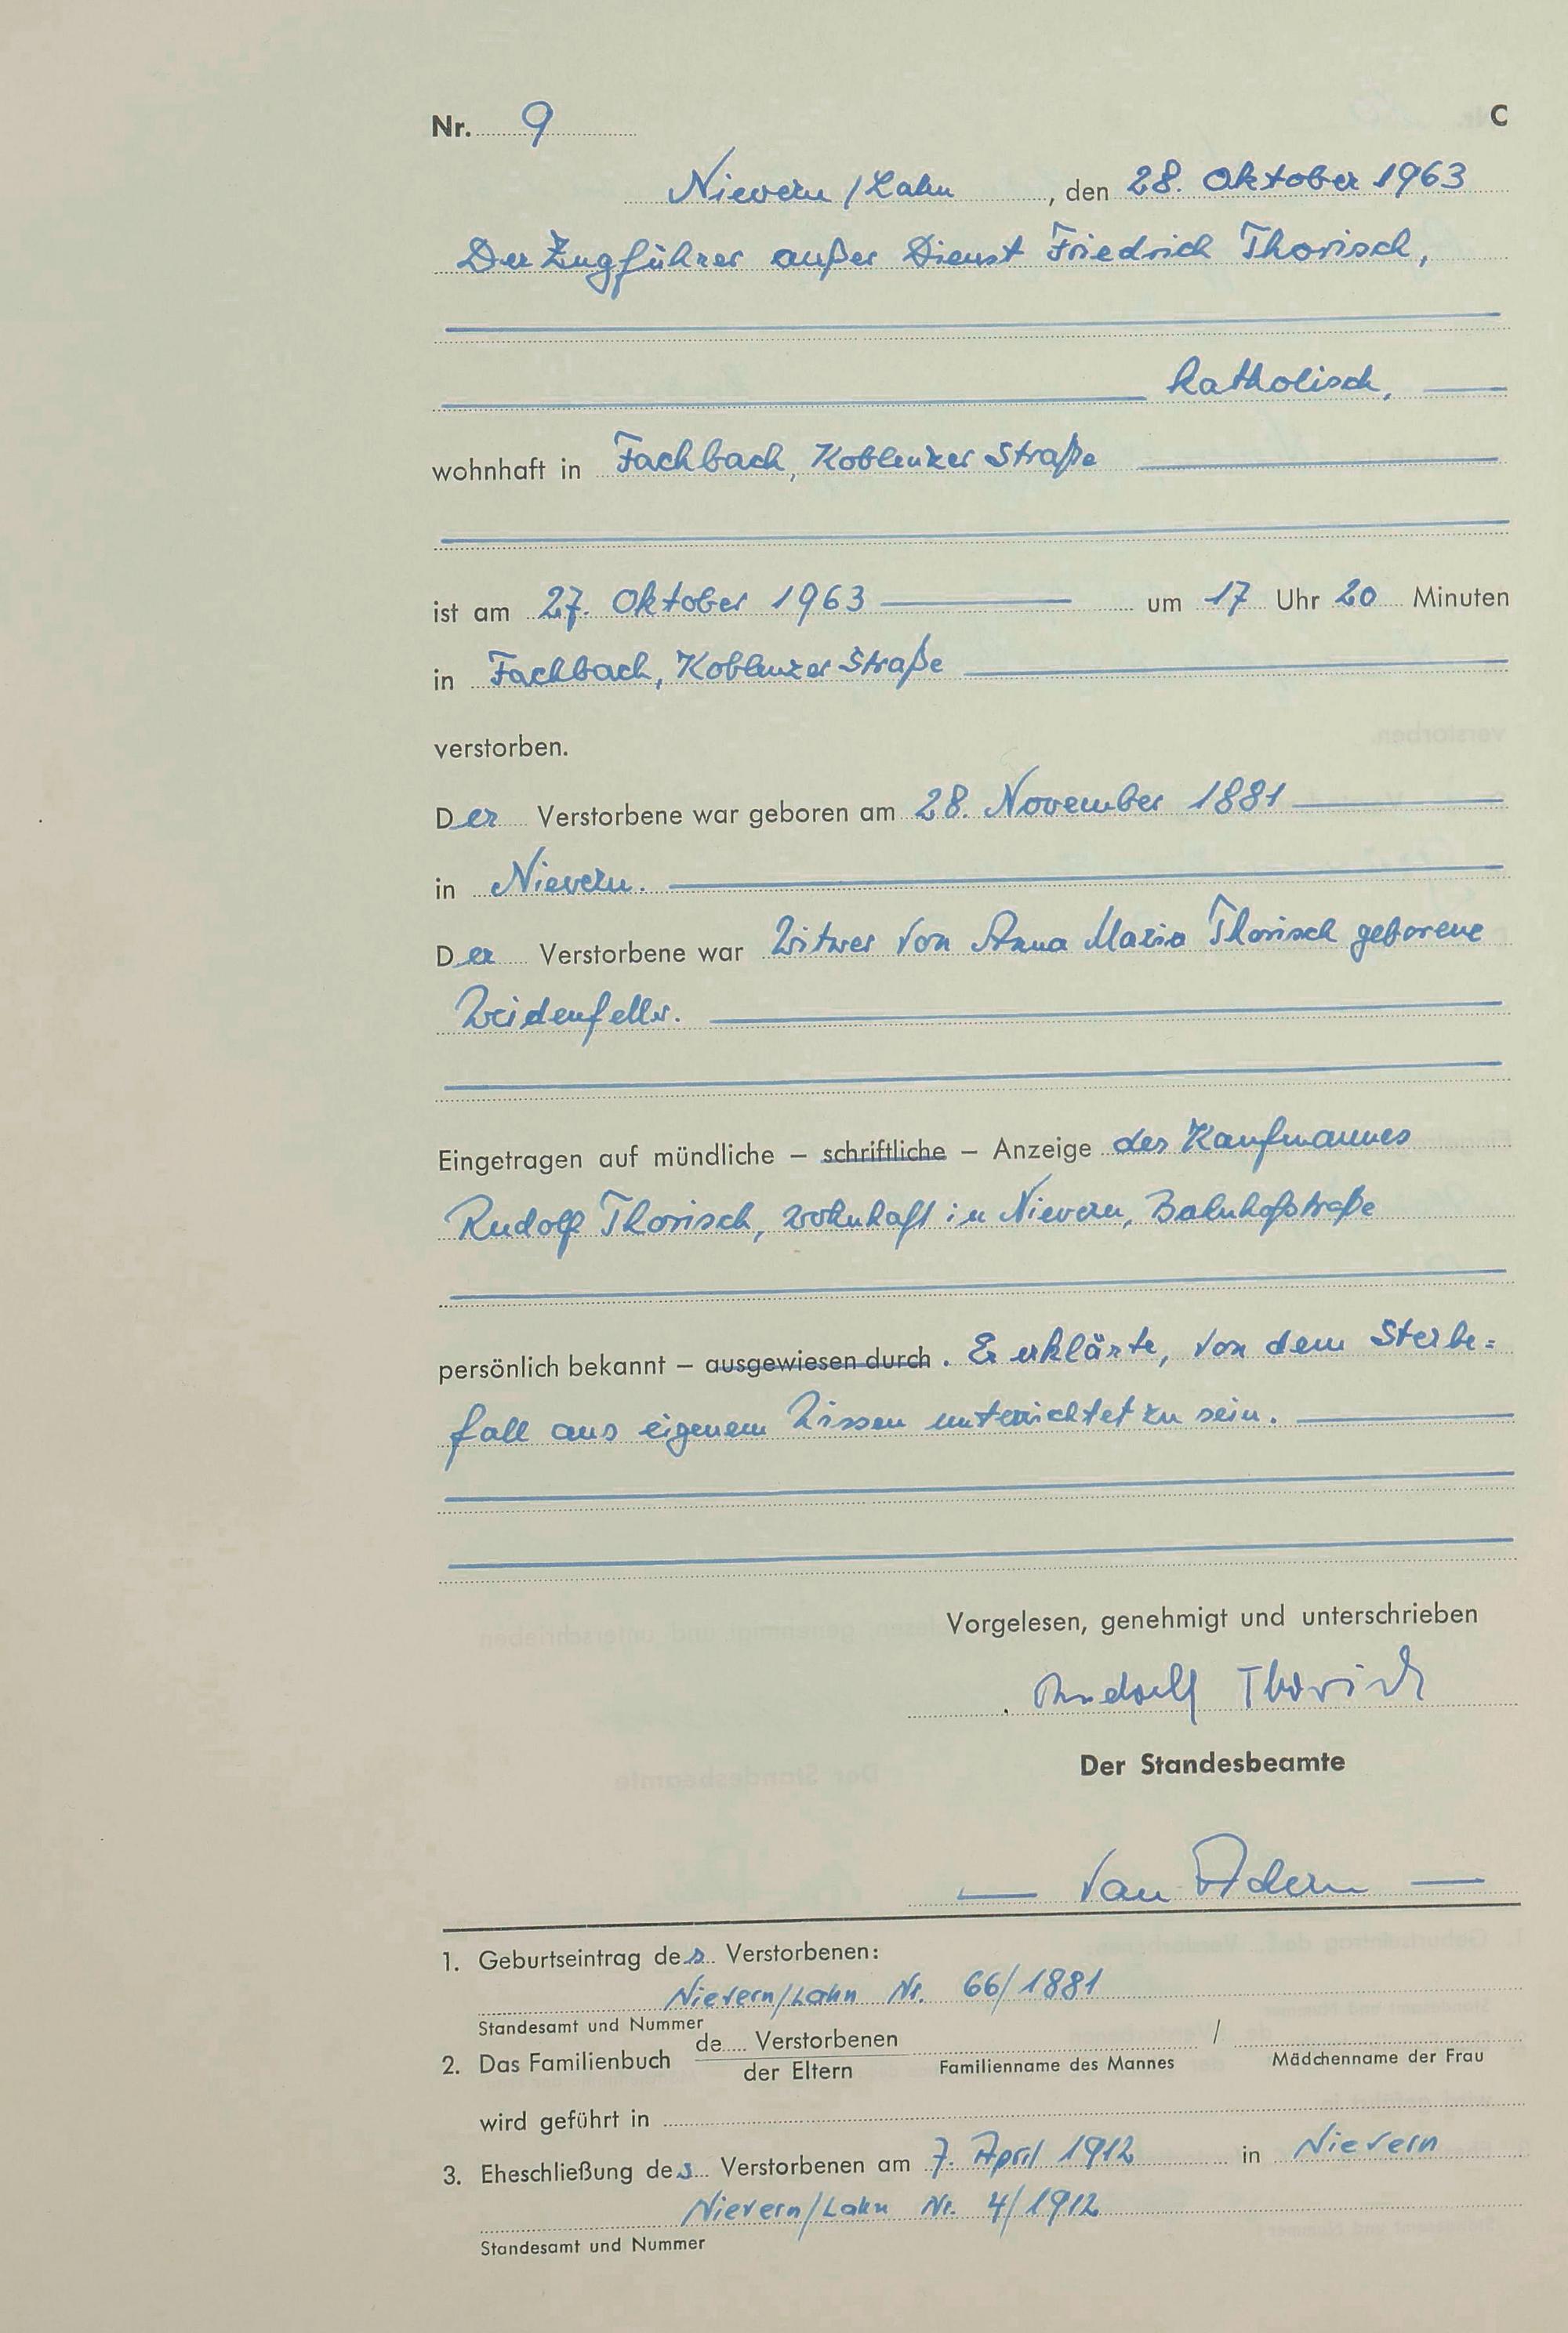 Nr. 9 C
Nievern/Lahn, den 28. Oktober 1963
Der Zugführer außer Dienst Friedrich Thorisch,
katholisch,
wohnhaft in Fachbach, Koblenzer Straße
ist am 27. Oktober 1963 um 17 Uhr 20 Minuten
in Fachbach, Koblenzer Straße
verstorben.
Der Verstorbene war geboren am 28. November 1881
in Nievern.
Der Verstorbene war Witwer von Anna Maria Thorisch geborene
Weidenfeller.
Eingetragen auf mündliche – schriftliche – Anzeige des Kaufmannes
Rudolf Thorisch, wohnhaft in Nievern, Bahnhofstraße
persönlich bekannt – ausgewiesen durch. Er erklärte, von dem Sterbe=
fall aus eigenem Wissen unterrichtet zu sein.
Vorgelesen, genehmigt und unterschrieben
Rudolf Thorisch
Der Standesbeamte
1. Geburtseintrag des Verstorbenen:
Nievern/Lahn Nr. 66/1881
Standesamt und Nummer
2. Das Familienbuch de..... Verstorbenen / 
der Eltern Familienname des Mannes Mädchenname der Frau
wird geführt in
3. Eheschließung des Verstorbenen am 7. April 1912 in Nievern
Nievern/Lahn Nr. 4/1912
Standesamt und Nummer